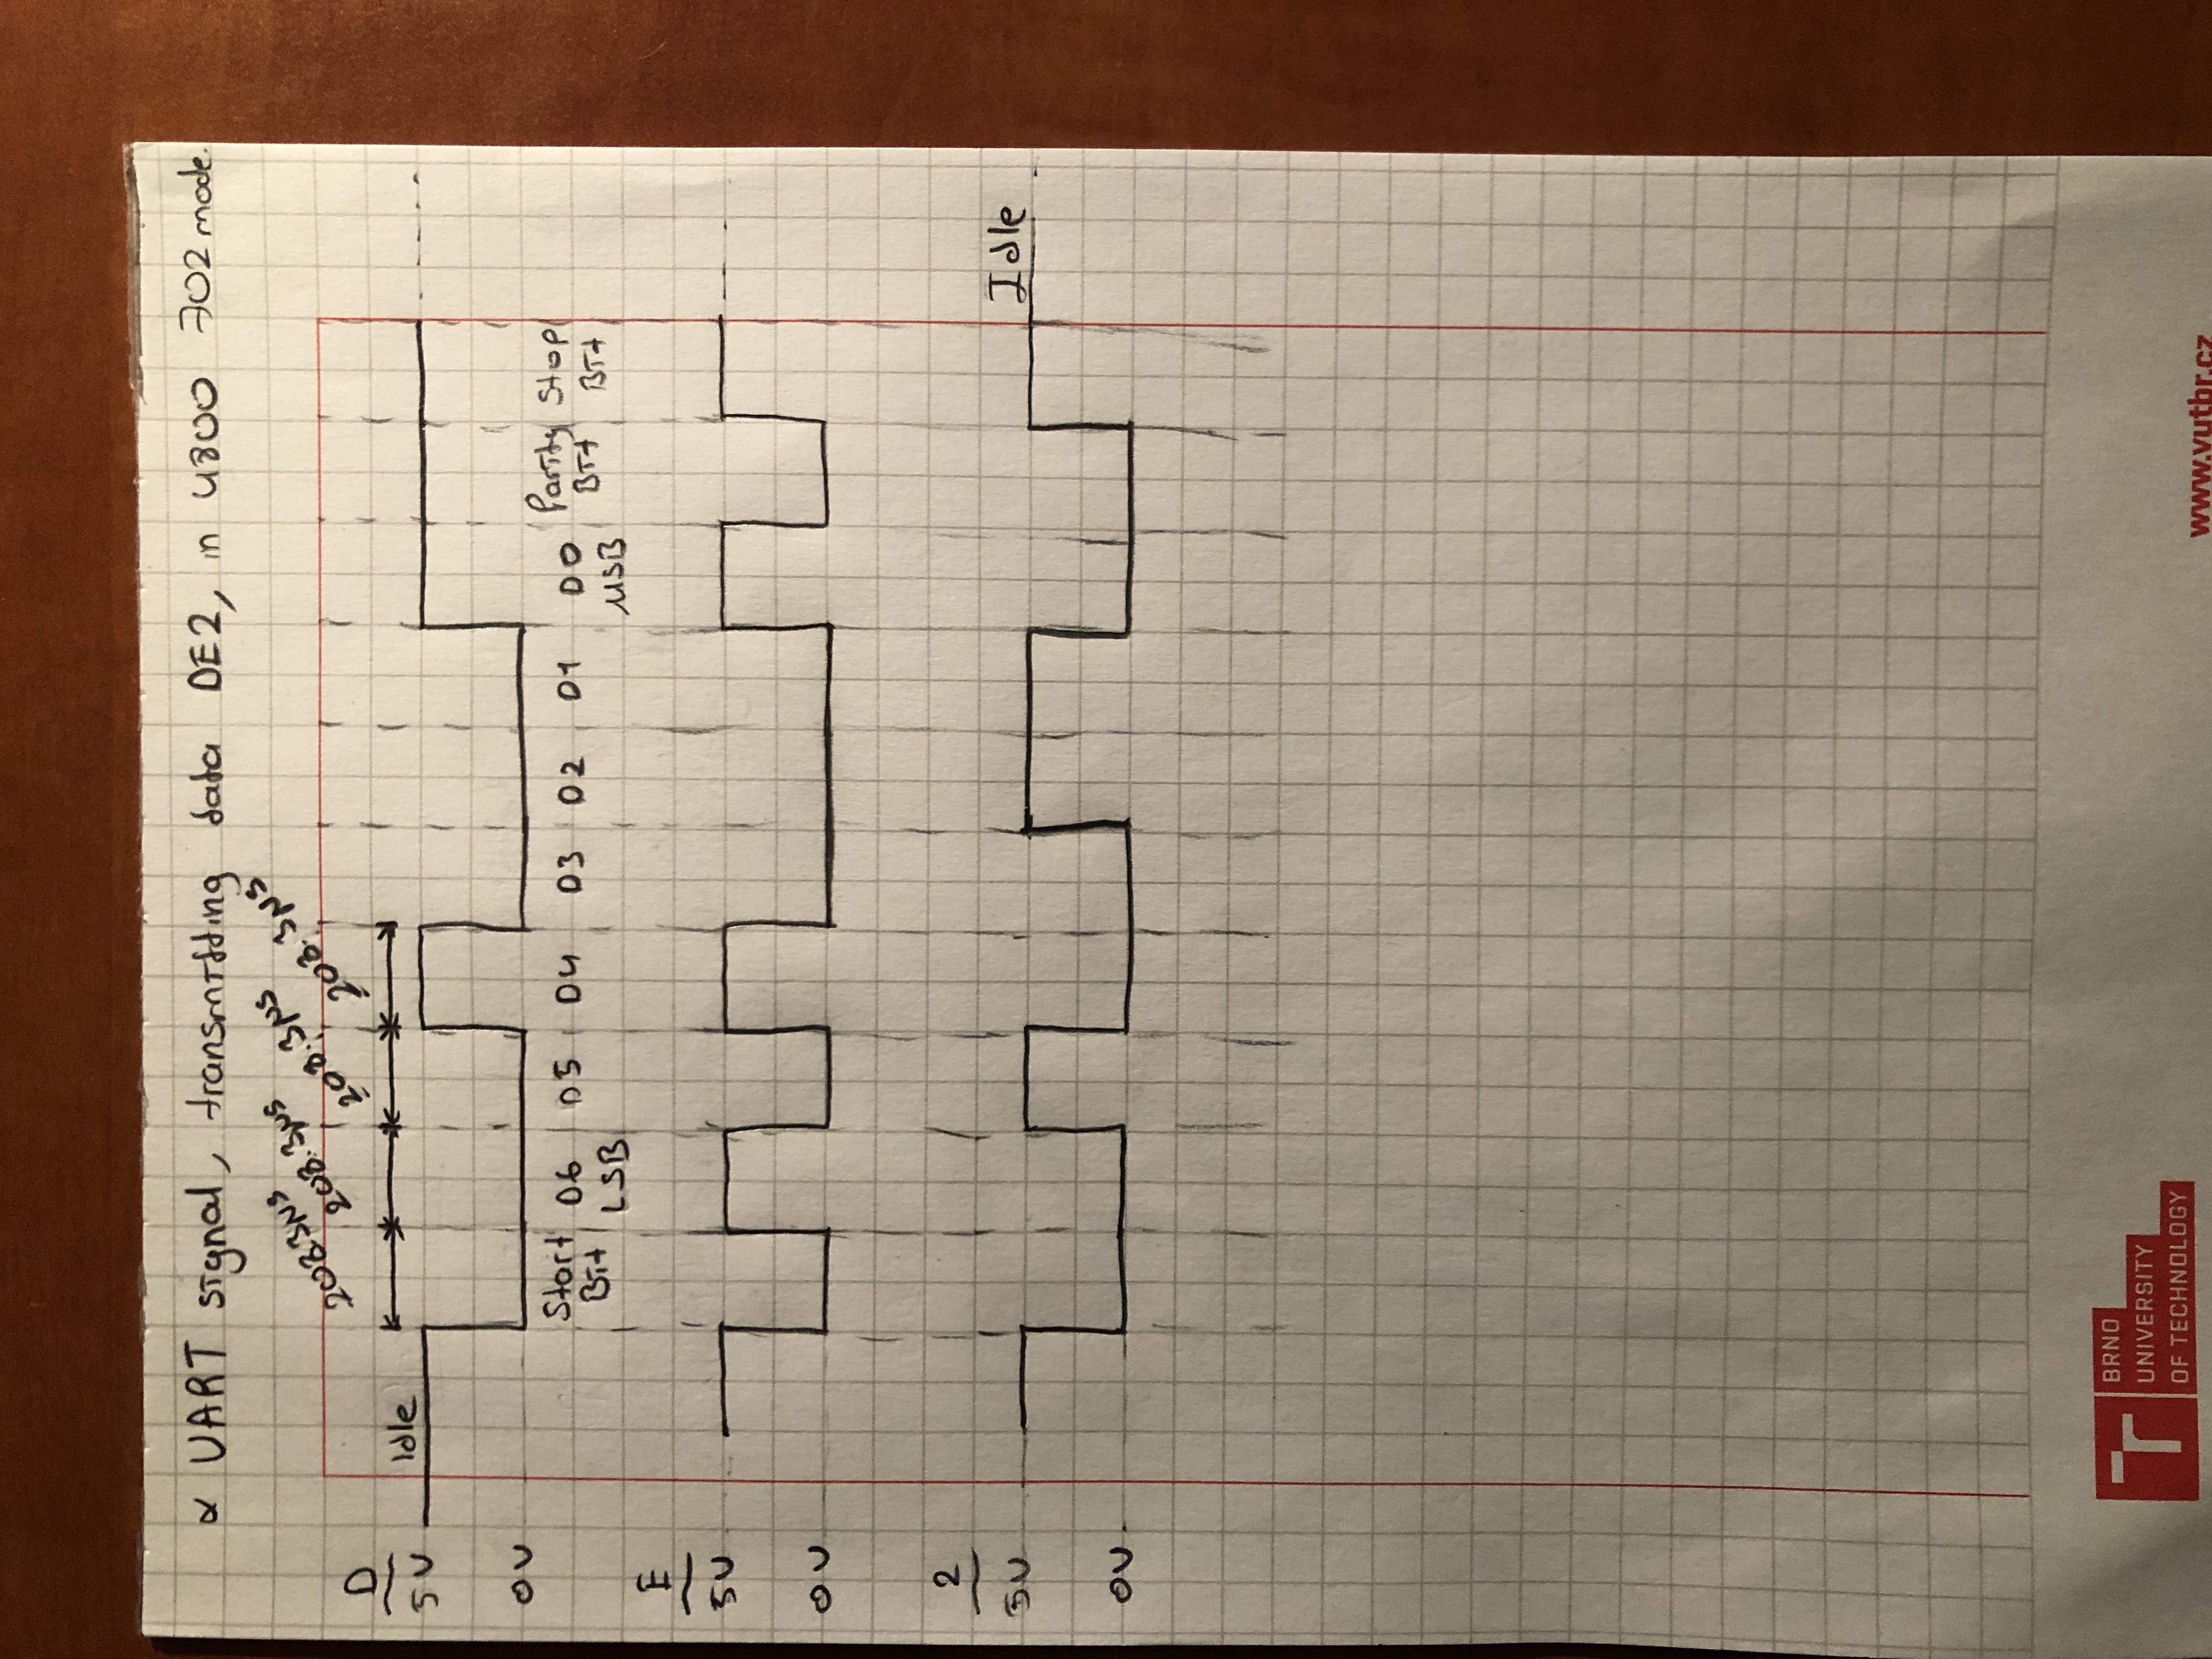 ∝ UART signal, transmitting data DE2, in 4800 7O2 mode.
208.3µs 208.3µs 208.3µs 208.3µs
D
Idle
5V
0V
Start Bit D6 LSB D5 D4 D3 D2 D1 D0 MSB Parity Bit Stop Bit
E
5V
0V
2
5V Idle
0V
BRNO
UNIVERSITY
OF TECHNOLOGY
www.vutbr.cz